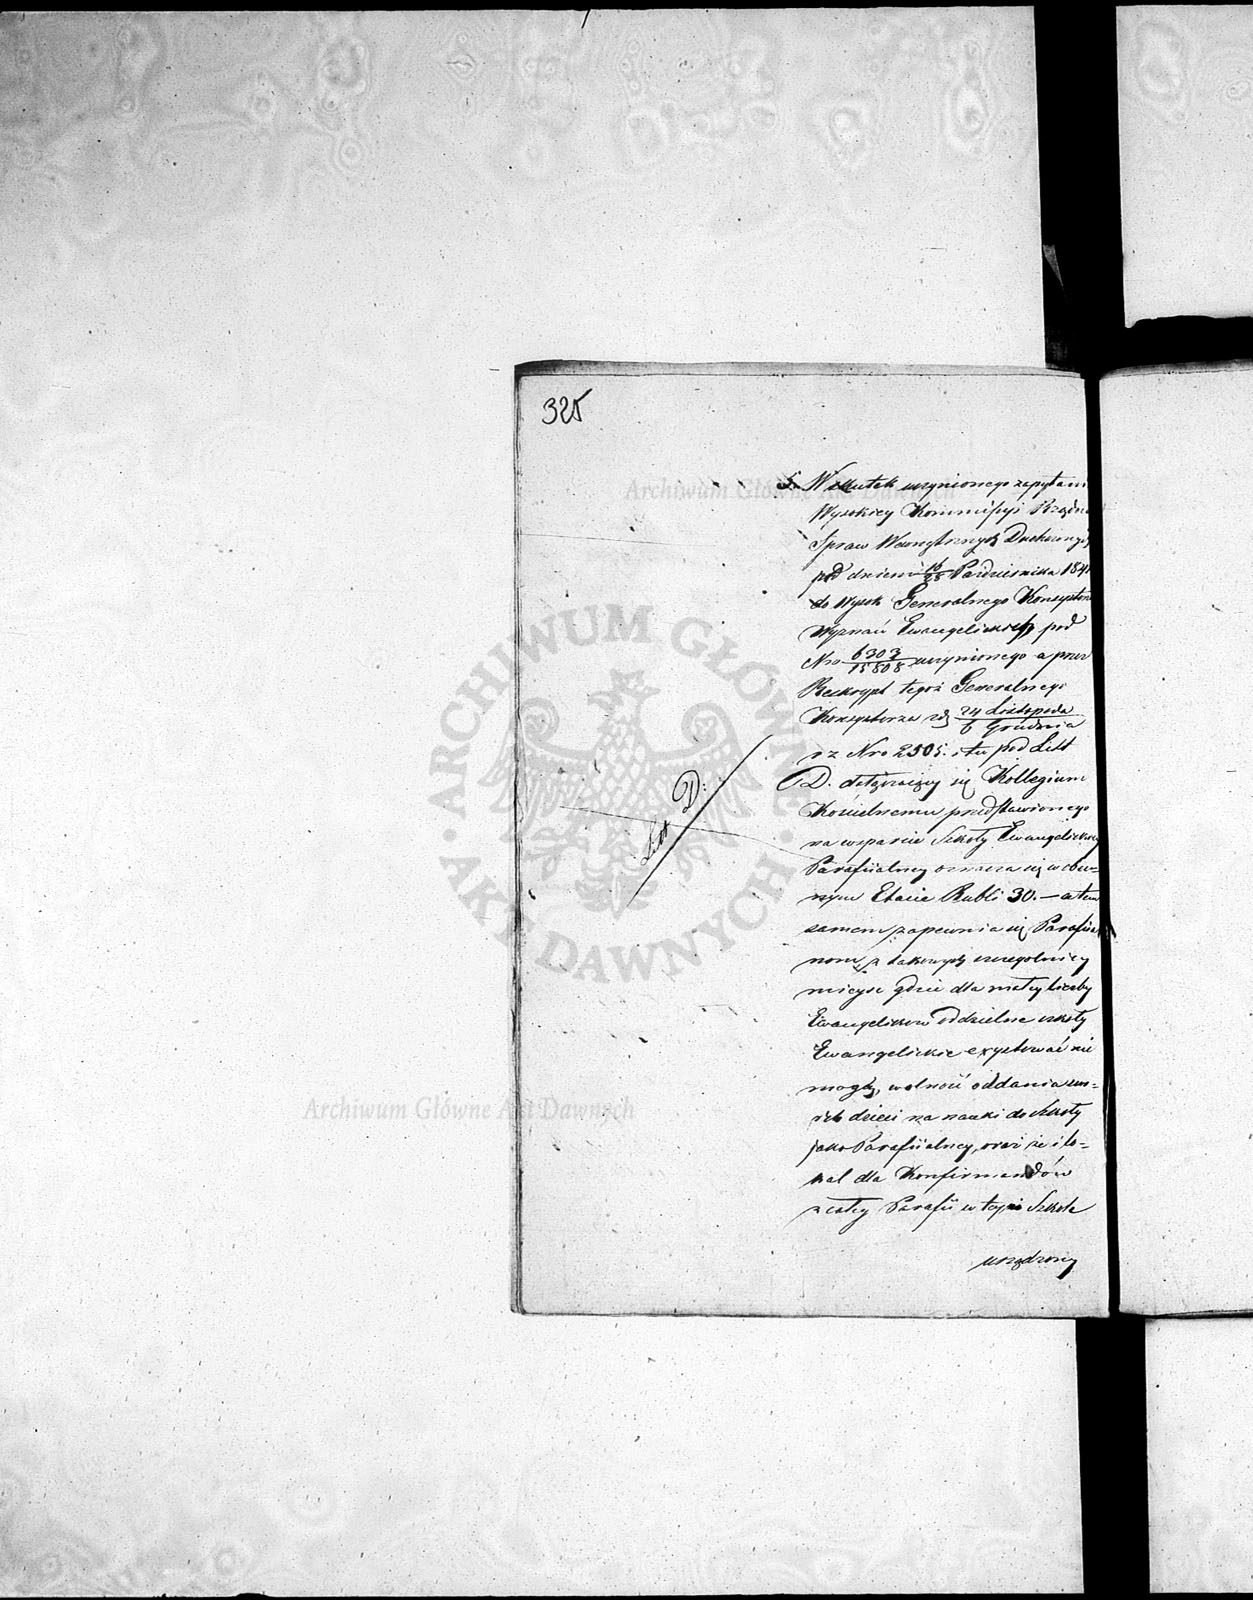 325
5. W skutek uczynionego zapytani
Wysokiey Kommissyi Rządo
Spraw Wewnętrznych Duchownych
pod dniem 16/28 Pazdziernika 184
do Wysok Generalnego Konsystor
Wyznań Ewangelickich pod
Nro 6303/15808 uczynionego a przez
Reskrypt tegoż Generalnego
Konsystorza z d 24 Listopada/6 Grudnia
r z Nro 2505. tu pod Litt
D. dołączaiący się Kollegium
Kościelnemu przedstawionego
na wsparcie Szkoły Ewangelickiey
Parafiialney oznacza się w obec-
nym Etacie Rubli 30. — a tem
samem zapewnia się Parafia
nom, z takowych szczegolniey
mieysc gdzie dla małey liczby
Ewangelikow oddzielne szkoły
Ewangelickie exystować nie
mogą, wolność oddania swo-
ich dzieci na nauki do Szkoły
jako Parafiialney, oraz że i lo-
kal dla Konfirmandów
z całey Parafii w teyże Szkole
urządzony
Litt D:
Archiwum Główne Akt Dawnych
ARCHIWUM GŁÓWNE AKT DAWNYCH
Archiwum Główne Akt Dawnych